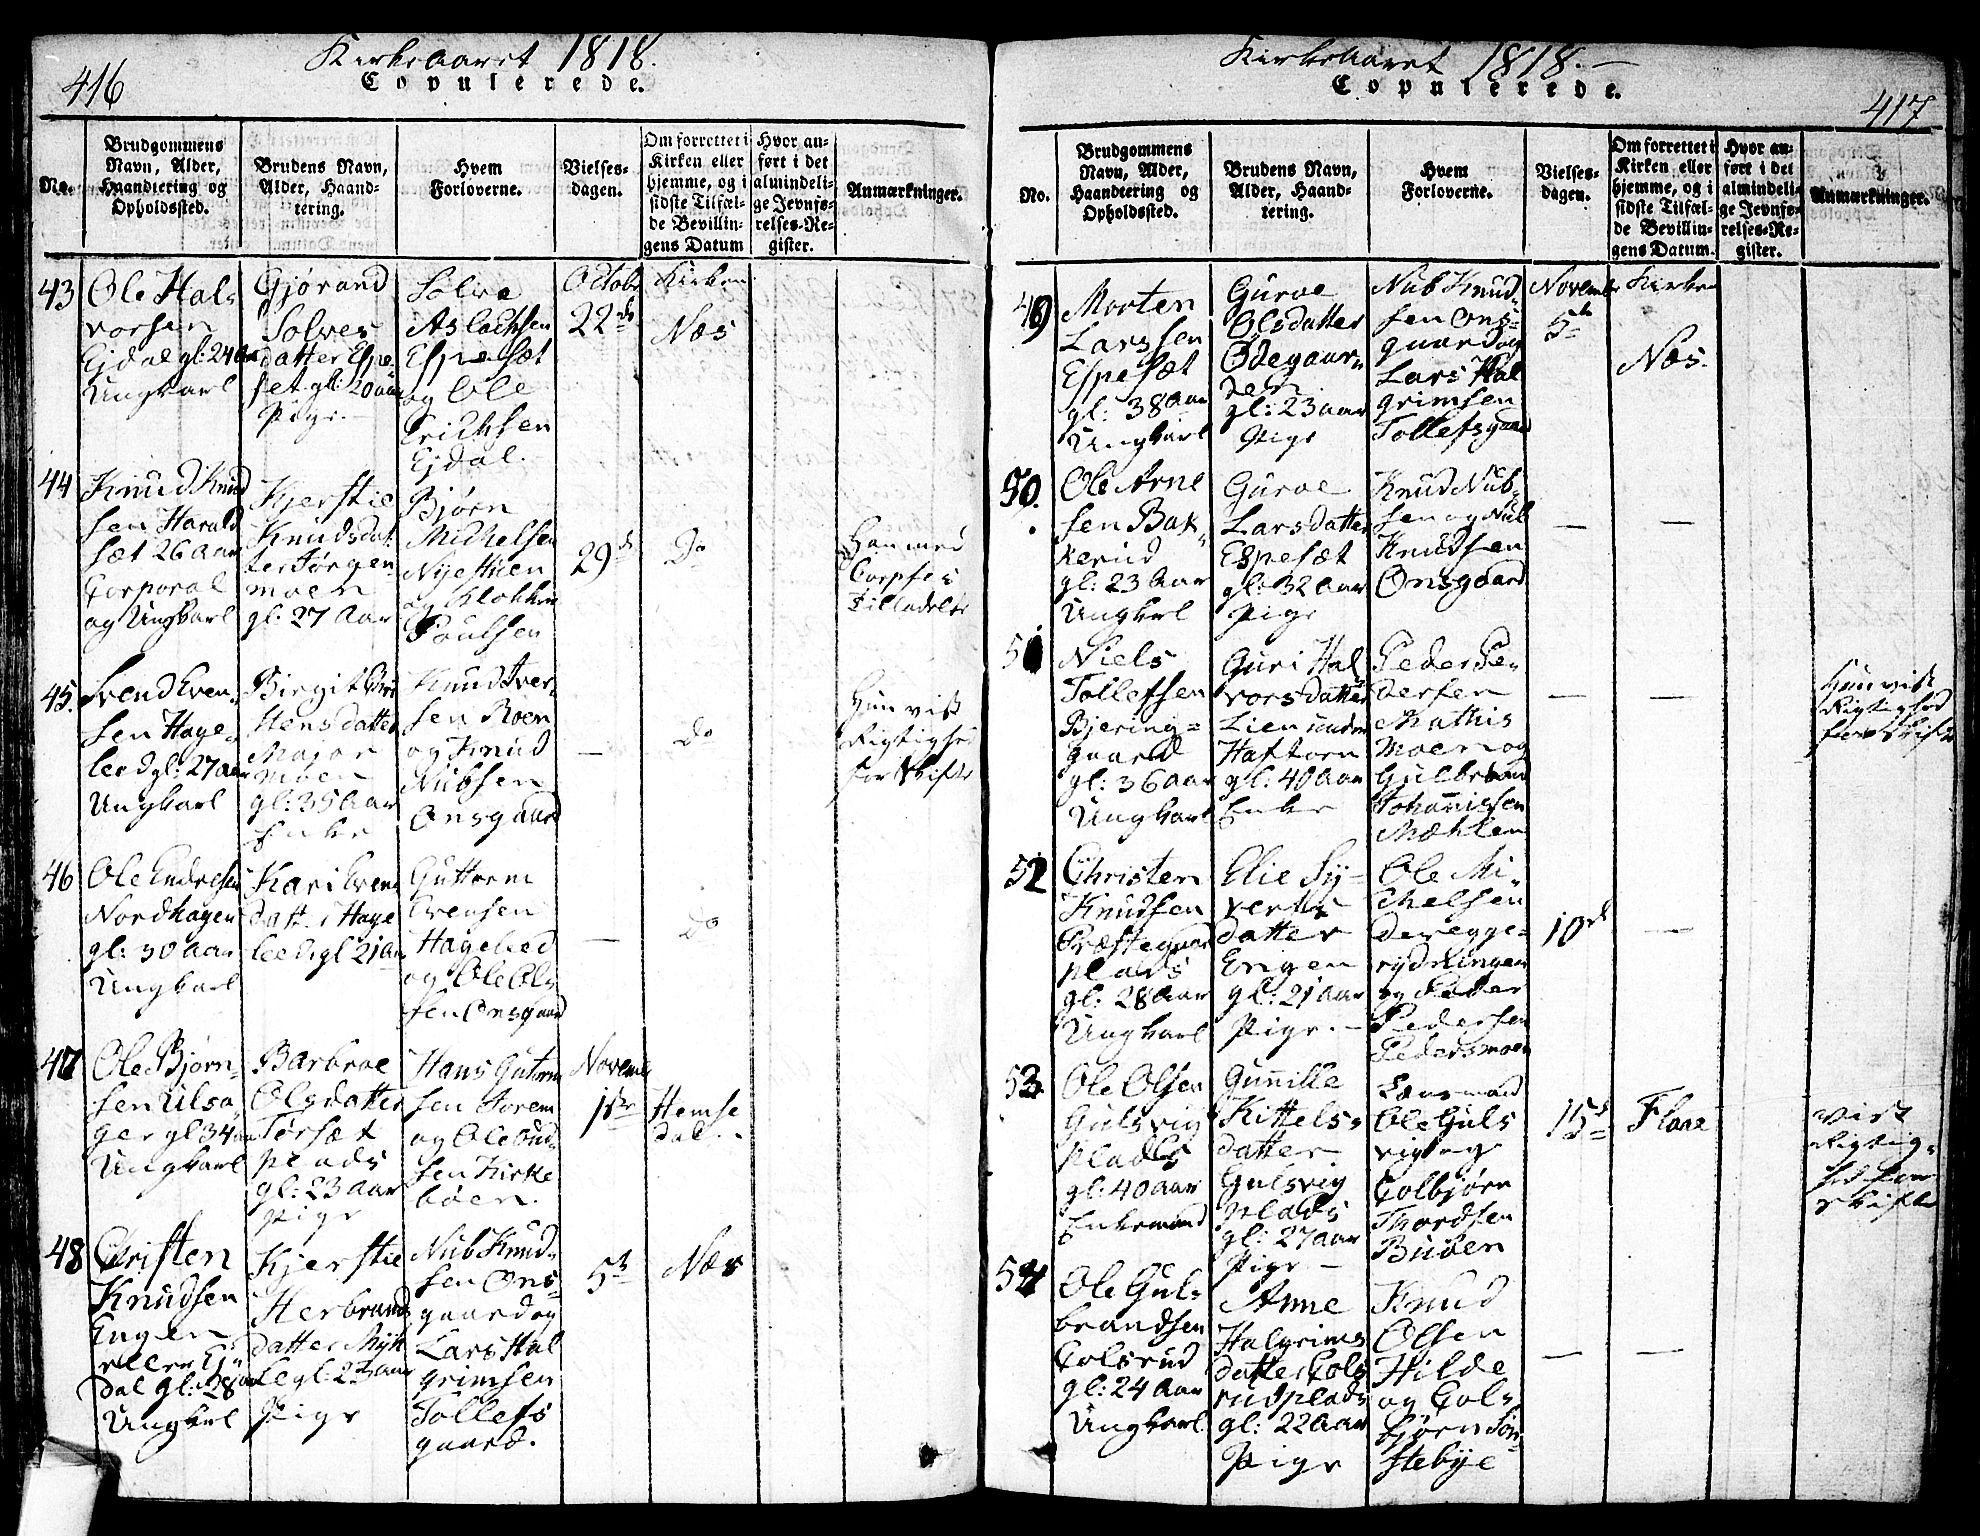 416
Kirkeaaret 1818.
Copulerede.
No.
Brudgommens
Navn, Alder,
Haandtering og
Opholdssted.
Brudens Navn,
Alder, Haand-
tering.
Hvem
Forloverne.
Vielses-
dagen.
Om forrettet i
Kirken eller
hjemme, og i
sidste Tilfæl-
de Bevillin-
gens Datum
Hvor an-
ført i det
almindeli-
ge Jevnfø-
relses-Re-
gister.
Anmærkninger.
43
Ole Hal-
vorsen
Ejdal gl: 24 Aar
Ungkarl
Gjørand
Solves
datter Espe
set gl: 20 aar
Pige.
Solve
Aslachsen
Espesæt
og Ole
Erichsen
Ejdal.
Octobr
22de
Kirken
Næs
44
Knud Knud
sen Harald
sæt 26 Aar
Corporal
og Ungkarl
Kjerstie
Knudsdat
ter Jørgen-
moen
gl: 27 Aar
Bjørn
Michelsen
Nijestuen
og Klokker
Poulsen
29de
Do
Han med
Corpses
Tilladelse
45.
Svend Even-
sen Hage-
leed gl: 27 Aar
Ungkarl
Birgit
stensdatter
Major
moen
gl: 35 Aar
Enke
Knud Iver-
sen Roen
og Knud
Nubsen
Onsgaard
—
Do
Hun vist
Rigtighed
for Skifte
46
Ole Endresen
Nordhagen
gl: 30 Aar
Ungkarl
Kari Evens
datt. Hage
leed gl 21 Aar
Guttorm
Evensen
Hageleed
og Ole Ols
sen Onsgaard
—
Do
47
Ole Bjørn-
sen Ulsa-
ger gl 34 aar
Ungkarl
Barbroe
Olsdatter
Torsæt
plads
gl: 23 Aar
Pige
Hans Gutorm
sen Torem
og Ole Knud-
sen Kirke
bøen.
Novembr
1ste
Hemse
dal.
48
Christen
Knudsen
Engen
eller Ej
dal gl: 28 Aar
Ungkarl
Kjerstie
Herbrands
datter Myk
le gl: 23 aar
Pige
Nub Knud-
sen Ons-
gaard og
Lars Hal
grimsen
Tollefs
gaard.
5te
Næs
417
Kirkeaaret 1818.—
Copulerede.
No.
Brudgommens
Navn, Alder,
Haandtering og
Opholdssted.
Brudens Navn,
Alder, Haand-
tering.
Hvem
Forloverne.
Vielses-
dagen.
Om forrettet i
Kirken eller
hjemme, og i
sidste Tilfæl-
de Bevillin-
gens Datum.
Hvor an-
ført i det
almindeli-
ge Jevnfø-
relses-Re-
gister.
Anmærkninger.
49
Morten
Larssen
Espesæt
gl: 38 Aar
Ungkarl
Guroe
Olsdatter
Ødegaar-
den
gl: 23 aar
Pige
Nub Knud-
sen Ons-
gaard og
Lars Hal
grimsen
Tollefsgaard
Novembr
5te
Kirken
Næs.
50.
Ole Arne
sen Bak-
kerud
gl: 23 Aar
Ungkarl
Guroe
Larsdatter
Espesæt
gl: 32 aar
Pige
Knud Nub-
sen og Nub
Knudsen
Onsgaard
—
—
51
Niels
Tollefsen
Bjering-
gaard
gl: 36 aar
Ungkarl
Guri Hal
vorsdatter
Lien under
Haftorn
gl: 40 Aar
Enke
Peder Pe-
dersen
Mathis
moen og
Gulbrand
Johannissen
Mæhlen
—
—
Hun vist
Rigtighed
for Skifte
52
Christen
Knudsen
Præstegaard
plads
gl: 28 aar
Ungkarl
Elie Sy-
verts
datter
Engen
gl: 21 aar
Pige.—
Ole Mi-
chelsen
Deregge-
rydningen
og Peder
Pedersen
Pedersmoen
10de
—
53
Ole Olsen
Gulsvig
plads
gl: 40 aar
Enkemand
Gunnille
Kittels-
datter
Gulsvig
plads
gl: 27 aar
Pige —
Lensmand
Ole Guls
vig og
Colbjørn
Thordsen
Buøen
15de
Flaae
Vist
Rigtig-
hed for
skifte
54
Ole Gul-
brandsen
Colsrud
gl: 24 Aar
Ungkarl
Anne
Halgrims
datter Cols
rudplads
gl: 22 Aar
Pige
Knud
Olsen
Hilde
og Col-
bjørn Søn-
stebye
—
—